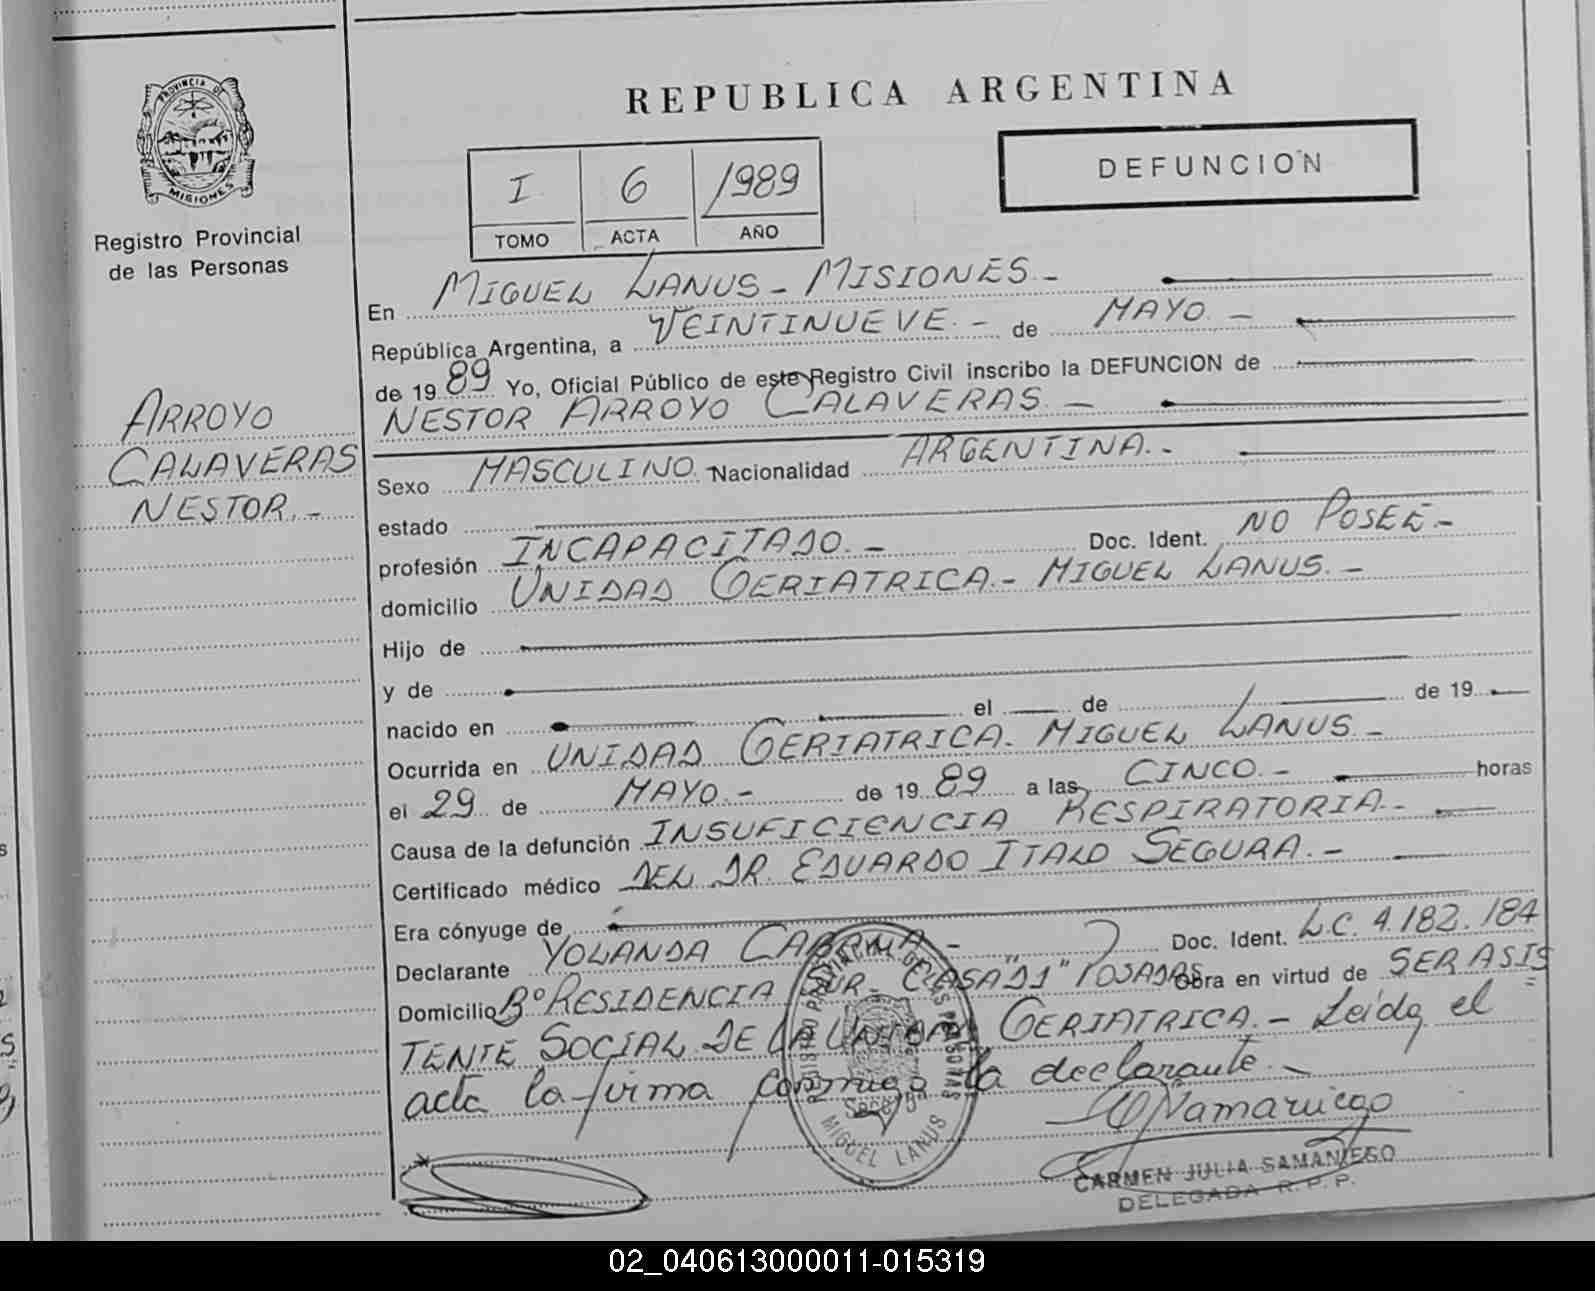 REPUBLICA ARGENTINA
PROVINCIA DE
MISIONES
Registro Provincial
de las Personas
I 6 1989
TOMO ACTA AÑO
DEFUNCION
ARROYO
CALAVERAS
NESTOR.-
En MIGUEL LANUS - MISIONES -
República Argentina, a VEINTINUEVE.- de MAYO.-
de 19 89 Yo, Oficial Público de este Registro Civil inscribo la DEFUNCION de
NESTOR ARROYO CALAVERAS -
Sexo MASCULINO. Nacionalidad ARGENTINA.-
estado
profesión INCAPACITADO.- Doc. Ident. NO POSEE-
domicilio UNIDAD GERIATRICA.- MIGUEL LANUS.-
Hijo de
y de
nacido en el de de 19
Ocurrida en UNIDAD GERIATRICA. MIGUEL LANUS.-
el 29 de MAYO.- de 19 89 a las CINCO.- horas
Causa de la defunción INSUFICIENCIA RESPIRATORIA.-
Certificado médico DEL DR. EDUARDO ITALO SEGURA.-
Era cónyuge de
Declarante YOLANDA Doc. Ident. L.C. 4.182.184
Domicilio Bº RESIDENCIA SUR. CASA POSADAS Obra en virtud de SER ASIS
TENTE SOCIAL DE LA UNIDAD GERIATRICA.- Leída el
acta la firma conmigo la declarante.-
REGISTRO PROVINCIAL DE LAS PERSONAS
MIGUEL LANUS
CARMEN JULIA SAMANIEGO
DELEGADA R.P.P.
02_040613000011-015319